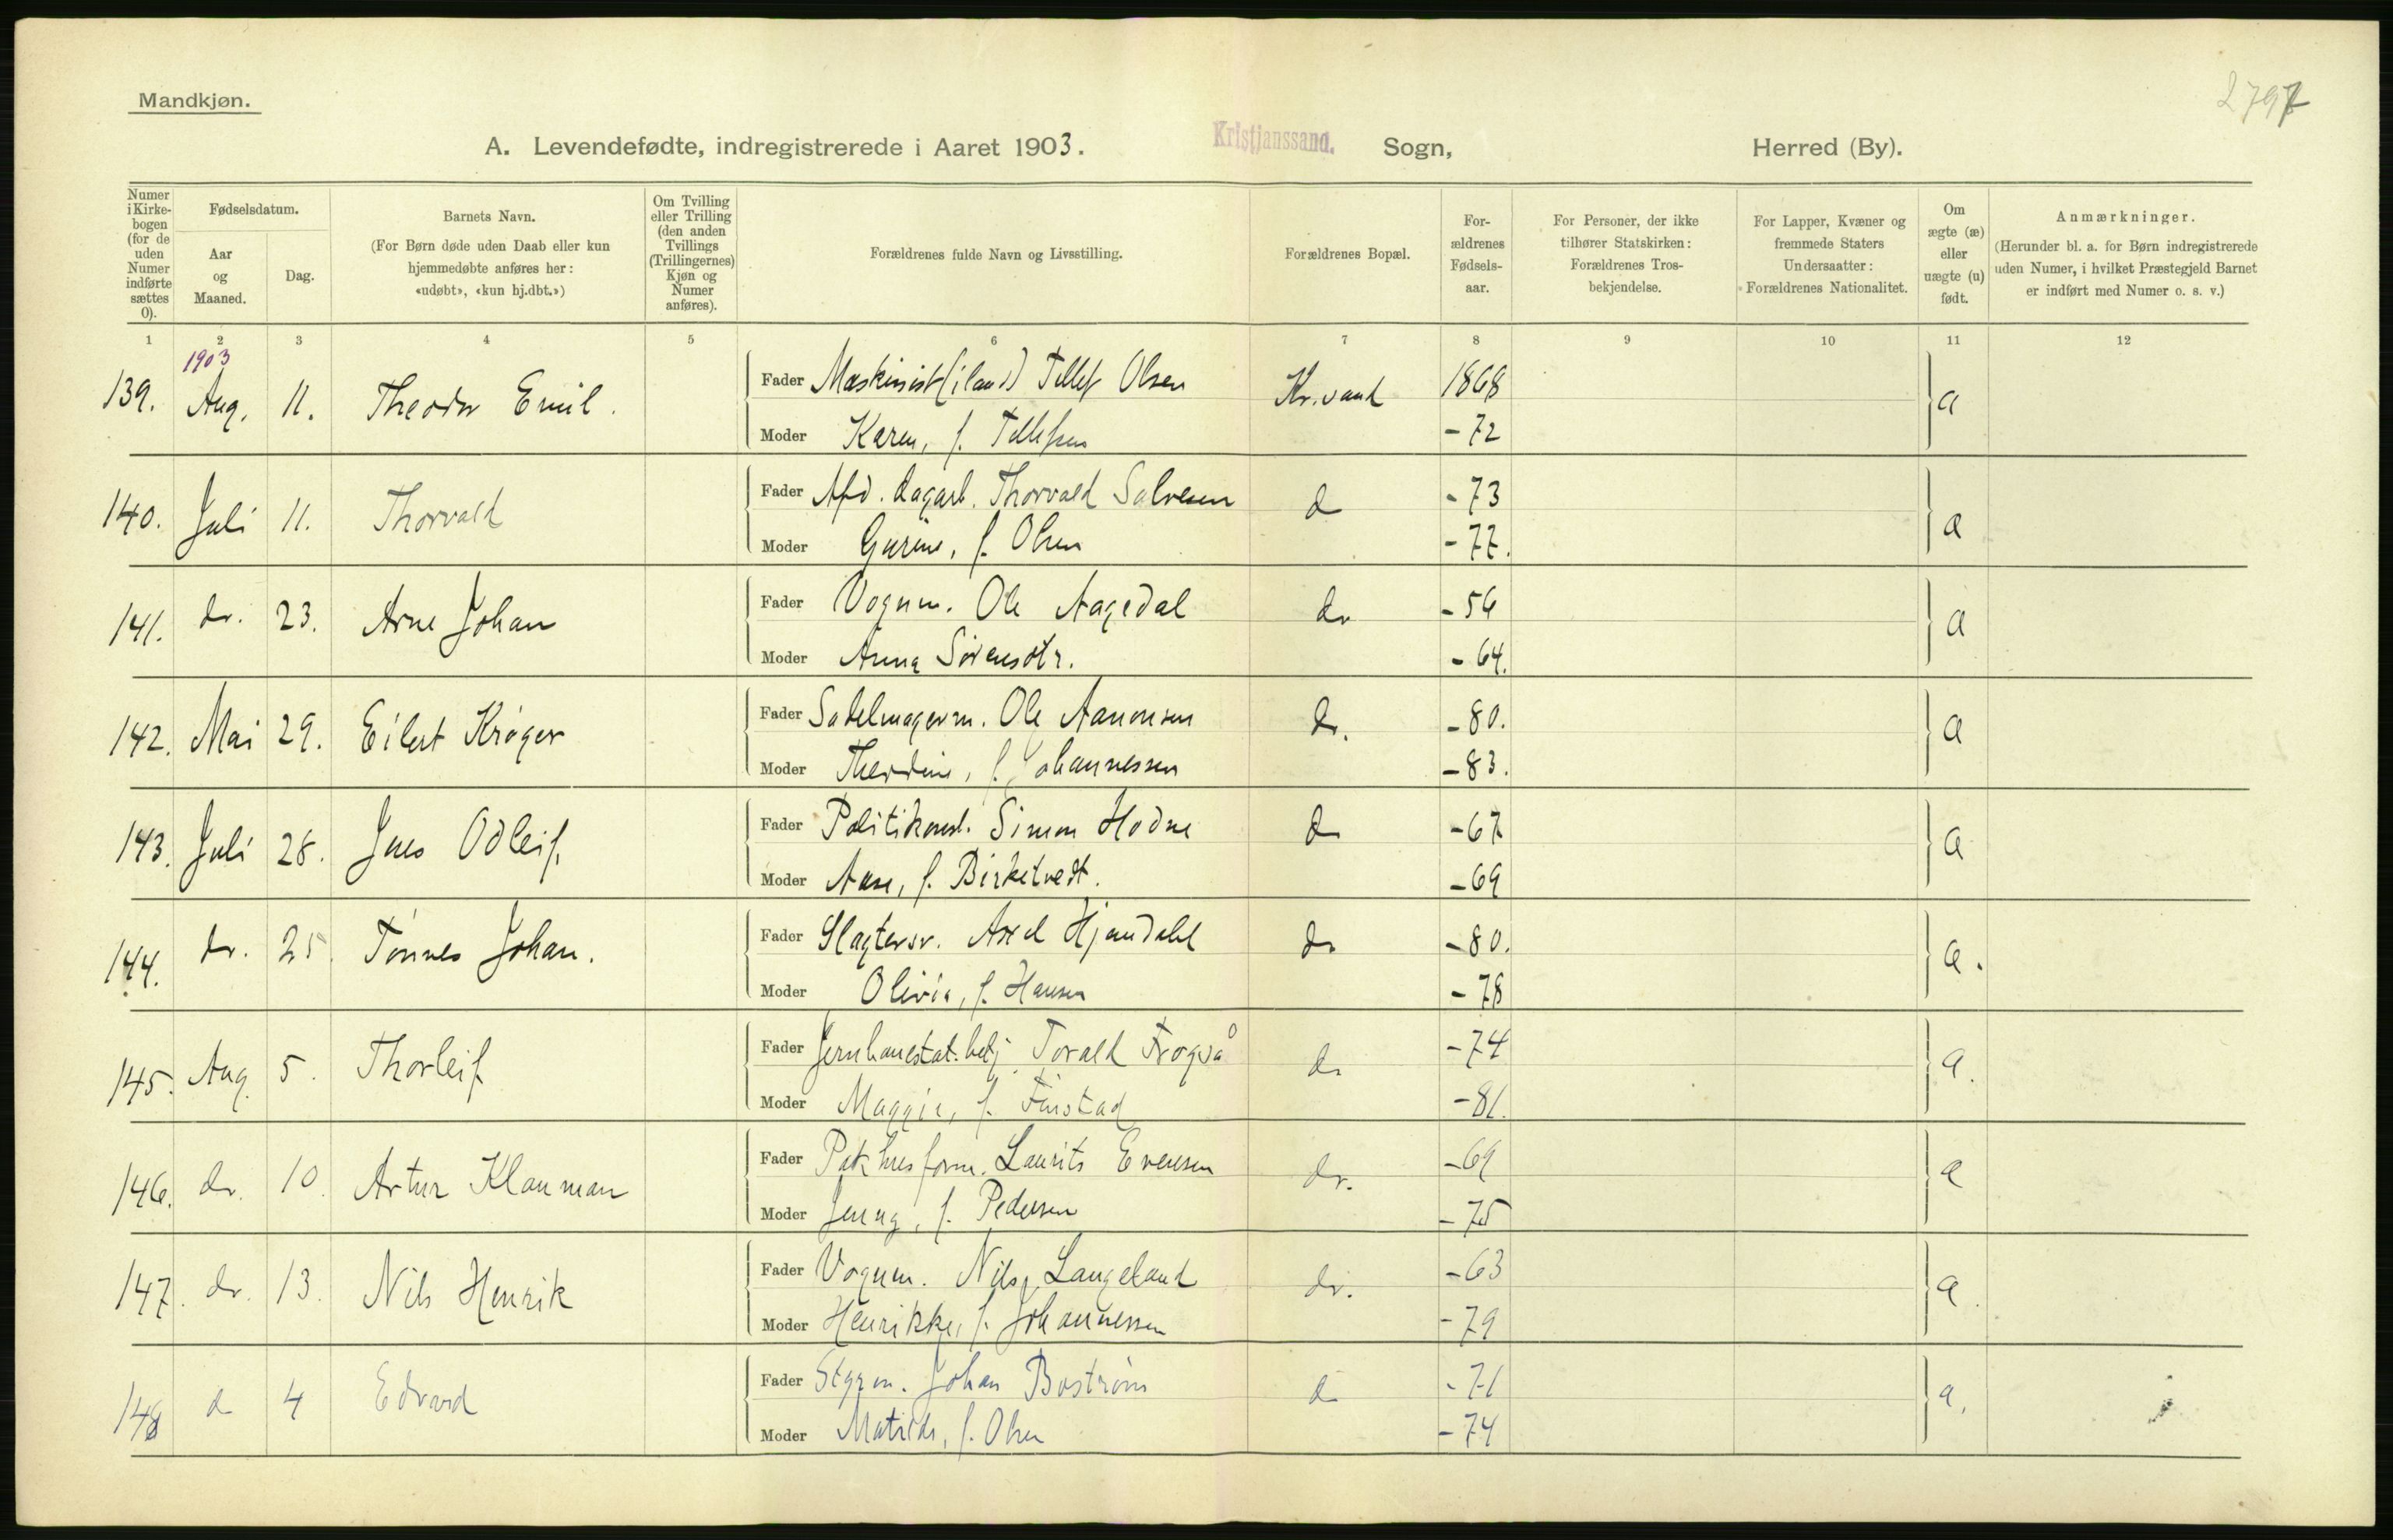 Mandkjøn.
2797
A. Levendefødte, indregistrerede i Aaret 1903. Kristjanssand. Sogn, Herred (By).
Numer i Kirkebogen (for de uden Numer indførte sættes 0).
Fødselsdatum.
Aar og Maaned.
Dag.
Barnets Navn.
(For Børn døde uden Daab eller kun hjemmedøbte anføres her: «udøbt», «kun hj.dbt.»)
Om Tvilling eller Trilling (den anden Tvillings (Trillingernes) Kjøn og Numer anføres).
Forældrenes fulde Navn og Livsstilling.
Forældrenes Bopæl.
Forældrenes Fødselsaar.
For Personer, der ikke tilhører Statskirken: Forældrenes Trosbekjendelse.
For Lapper, Kvæner og fremmede Staters Undersaatter: Forældrenes Nationalitet.
Om ægte (æ) eller uægte (u) født.
Anmærkninger.
(Herunder bl. a. for Børn indregistrerede uden Numer, i hvilket Præstegjeld Barnet er indført med Numer o. s. v.)
1 2 3 4 5 6 7 8 9 10 11 12
1903
139. Aug. 11. Theodor Emil. Fader Maskinist (iland) Tellef Olsen Kr.sand 1868 æ
Moder Karen, f. Tellefsen - 72
140. Juli 11. Thorvald Fader Afd. dagarb. Thorvald Salvesen do - 73 æ
Moder Gurine, f. Olsen - 77.
141. do. 23. Arne Johan Fader Vognm. Ole Aagedal do - 56 æ
Moder Anna Sørensdtr. - 64.
142. Mai 29. Eilert Krøger Fader Sadelmagerm. Ole Aanonsen do. - 80. æ
Moder Theodine, f. Johannessen - 83.
143. Juli 28. Jens Odleif. Fader Politikonst. Simon Hodne do - 67 æ
Moder Aase, f. Birketvedt. - 69
144. do. 25. Tønnes Johan. Fader Slagtersv. Axel Hjemdahl do - 80. æ.
Moder Olivia, f. Hansen - 78
145. Aug. 5. Thorleif Fader Jernbanestat. betj. Torald Froyså do - 74 æ.
Moder Maggie, f. Finstad - 81.
146. do. 10. Artur Klauman Fader Pakhusform. Laurits Evensen do. - 69 æ
Moder Jenny, f. Pedersen - 75
147. do. 13. Nils Henrik Fader Vognm. Nils Langeland do. - 63 æ.
Moder Henrikke, f. Johannessen - 79
148 do 4 Edvard Fader Styrm. Johan Bostrøm do - 71 æ.
Moder Matilde, f. Olsen - 74